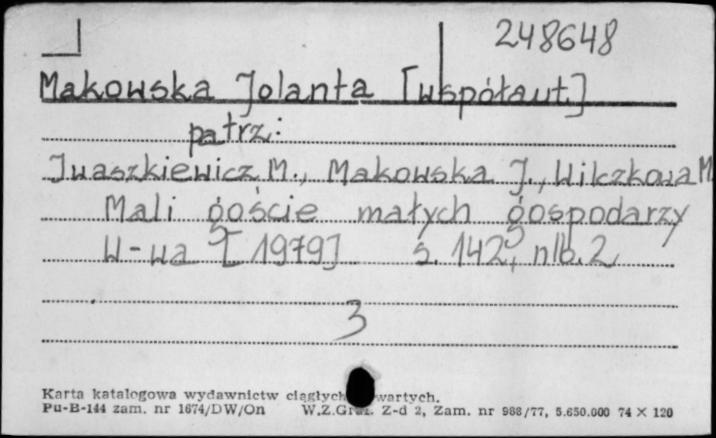 248648
Makowska Jolanta [współaut.]
patrz:
Iwaszkiewicz M., Makowska J., Wilczkowa M
Mali goście małych gospodarzy
W-wa [1979] s. 142, nlb. 2
3
Karta katalogowa wydawnictw ciągłych wartych.
Pu-B-144 zam. nr 1674/DW/On W.Z.Graf. Z-d 2, Zam. nr 988/77, 5.650.000 74 × 120